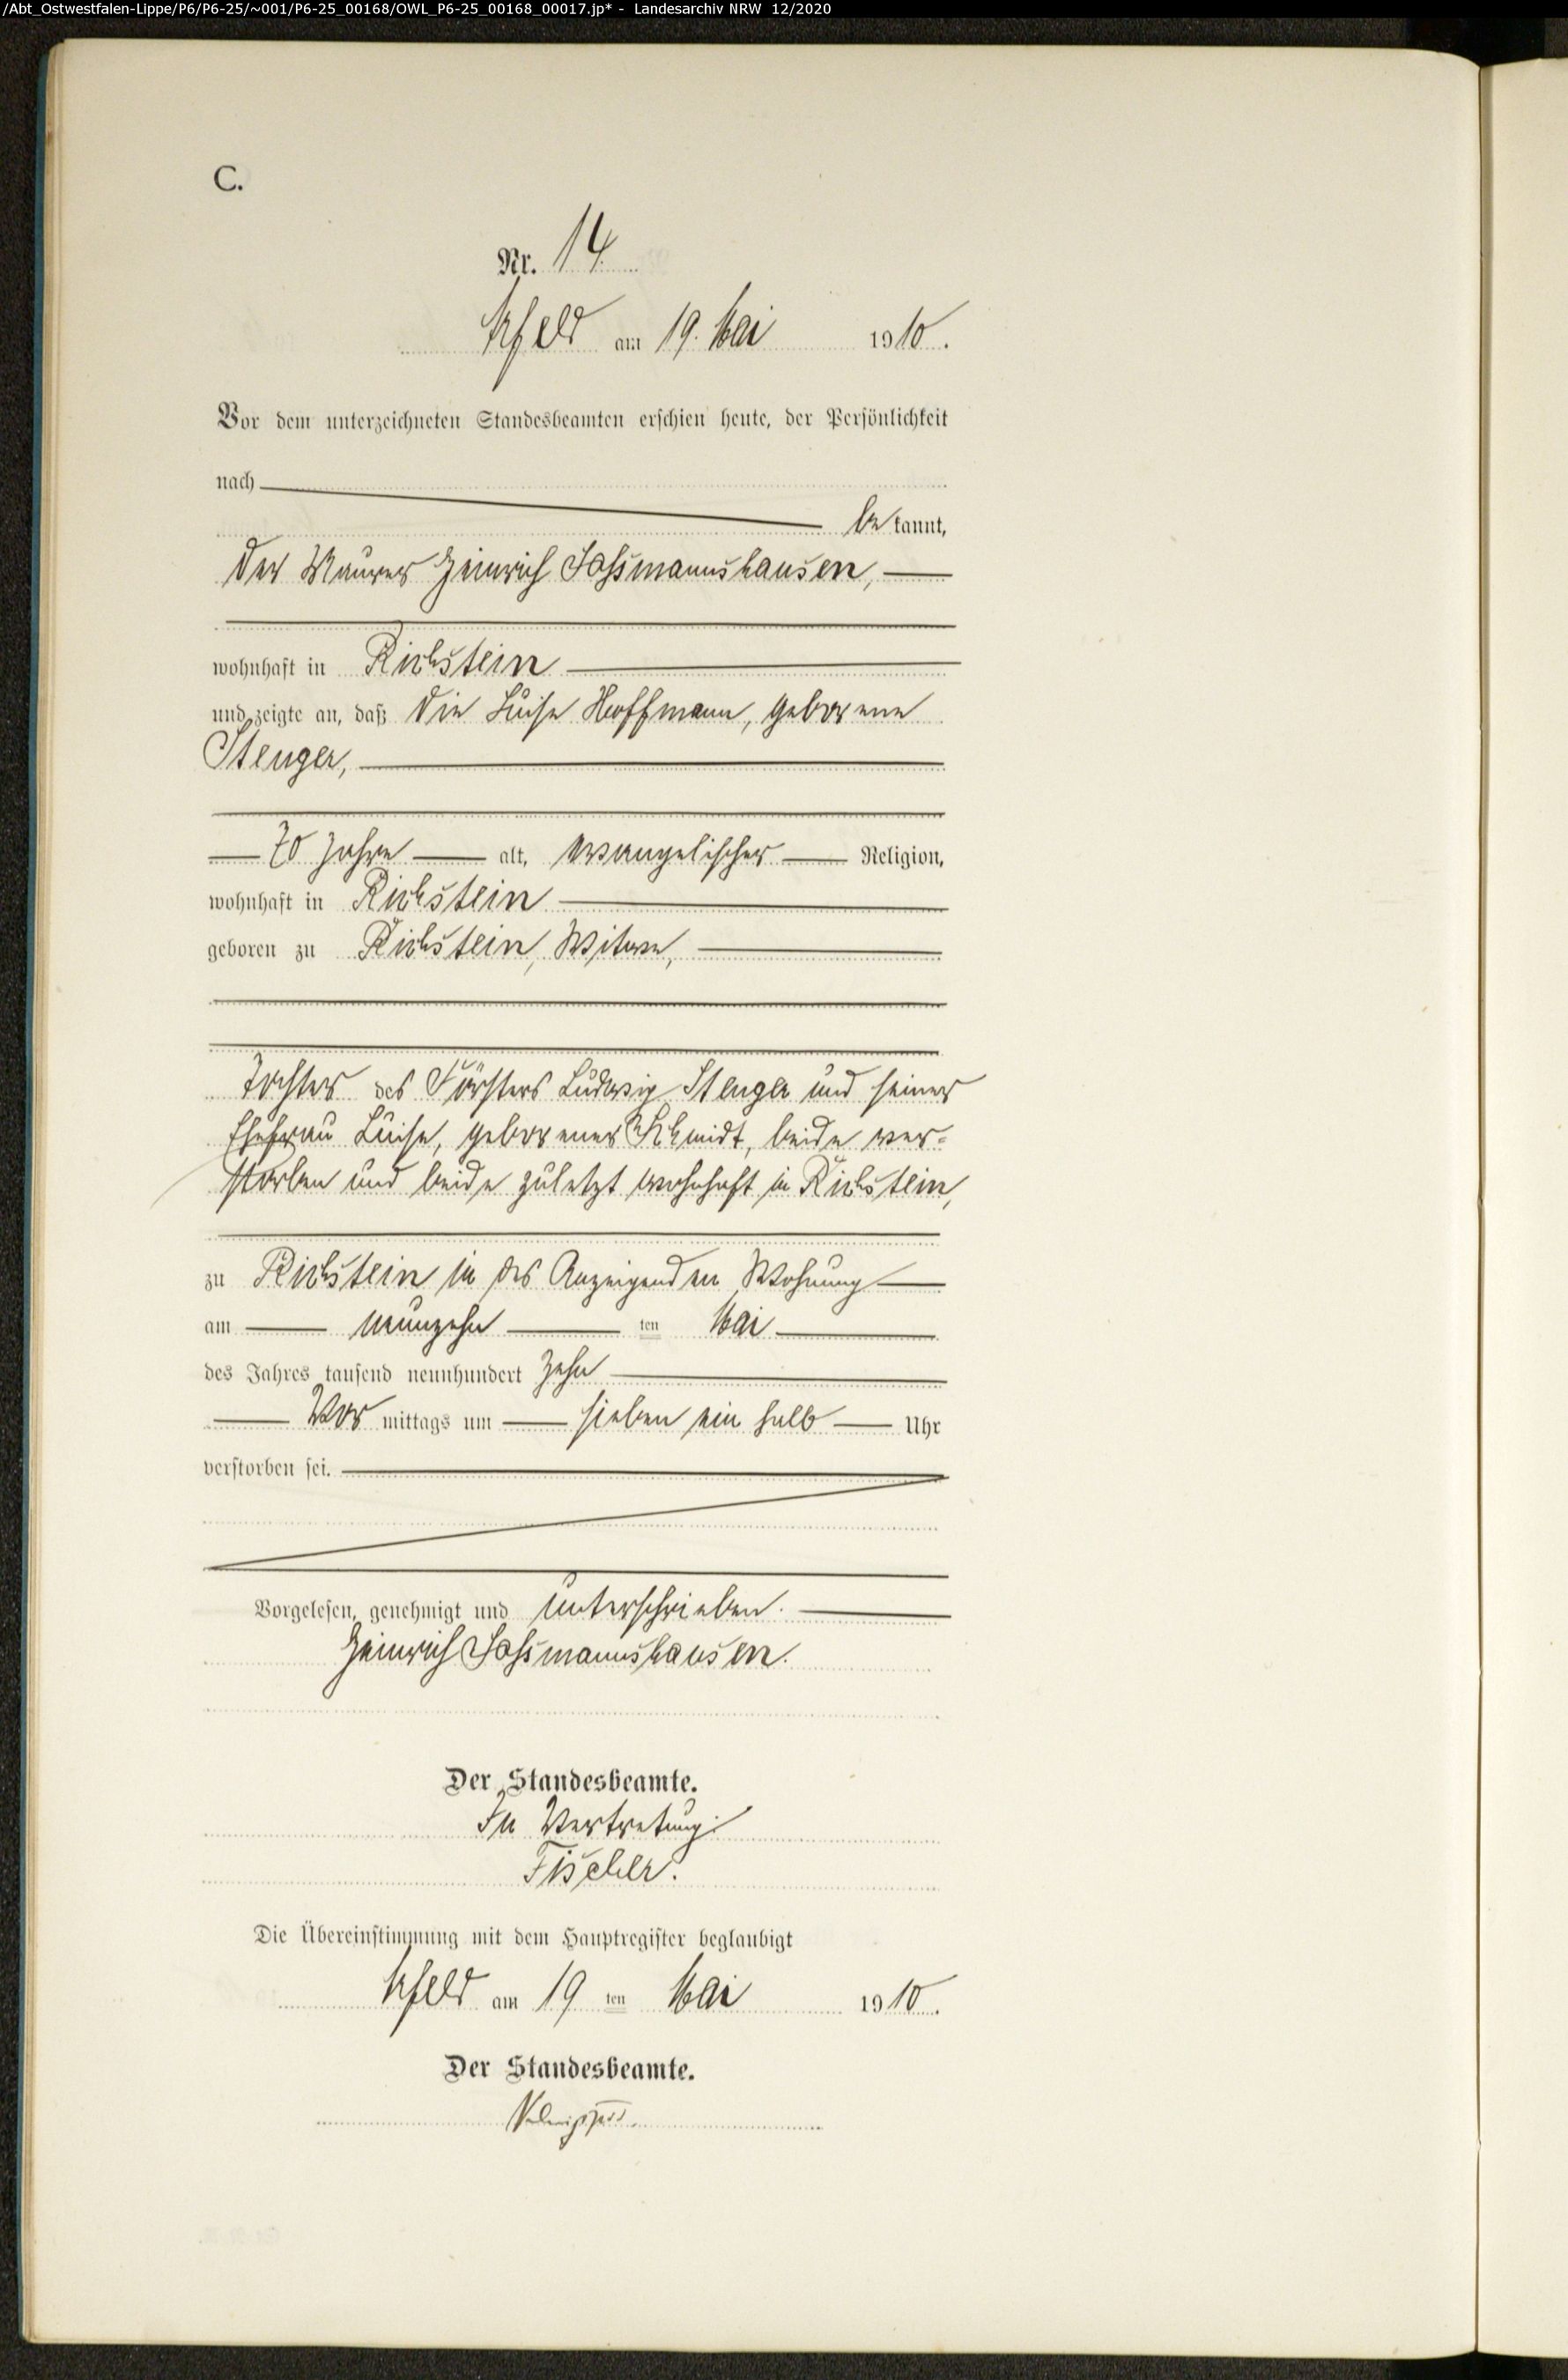 /Abt_Ostwestfalen-Lippe/P6/P6-25/~001/P6-25_00168/OWL_P6-25_00168_00017.jp* - Landesarchiv NRW 12/2020
C.
Nr. 14
Arfeld am 19. Mai 1910.
Vor dem unterzeichneten Standesbeamten erschien heute, der Persönlichkeit
nach
bekannt,
der Maurer Heinrich Sassmannshausen,
wohnhaft in Richstein
und zeigte an, daß die Luise Hoffmann, geborene
Stenger,
70 Jahre alt, evangelischer Religion,
wohnhaft in Richstein
geboren zu Richstein, Witwe,
Tochter des Försters Ludwig Stenger und seiner
Ehefrau Luise, geborener Schmidt, beide ver-
storben und beide zuletzt wohnhaft in Richstein,
zu Richstein in des Anzeigenden Wohnung
am neunzehn ten Mai
des Jahres tausend neunhundert zehn
Vor mittags um sieben ein halb Uhr
verstorben sei.
Vorgelesen, genehmigt und unterschrieben.
Heinrich Sassmannshausen.
Der Standesbeamte.
In Vertretung:
Fischer.
Die Übereinstimmung mit dem Hauptregister beglaubigt
Arfeld am 19 ten Mai 1910.
Der Standesbeamte.